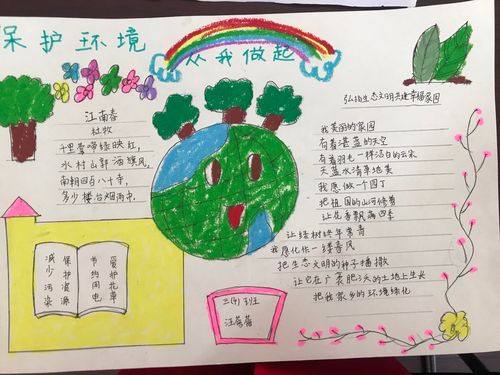 保护环境
从我做起
江南春
杜牧
千里莺啼绿映红,
水村山郭酒旗风,
南朝四百八十寺,
多少楼台烟雨中,
弘扬生态文明共建幸福家园
我美丽的家园
有着湛蓝的天空
有着羽毛一样洁白的云朵
天蓝水清草地美
我愿做一个园丁
把祖国的山河修剪
让花香飘满四季
让绿树映年常青
我愿化作一缕春风
把生态文明的种子播撒
让它在广袤肥沃的土地上生长
把我家乡的环境绿化
减少污染
保护资源
节约用电
爱护花草
三(4)班
汪蓓蓓